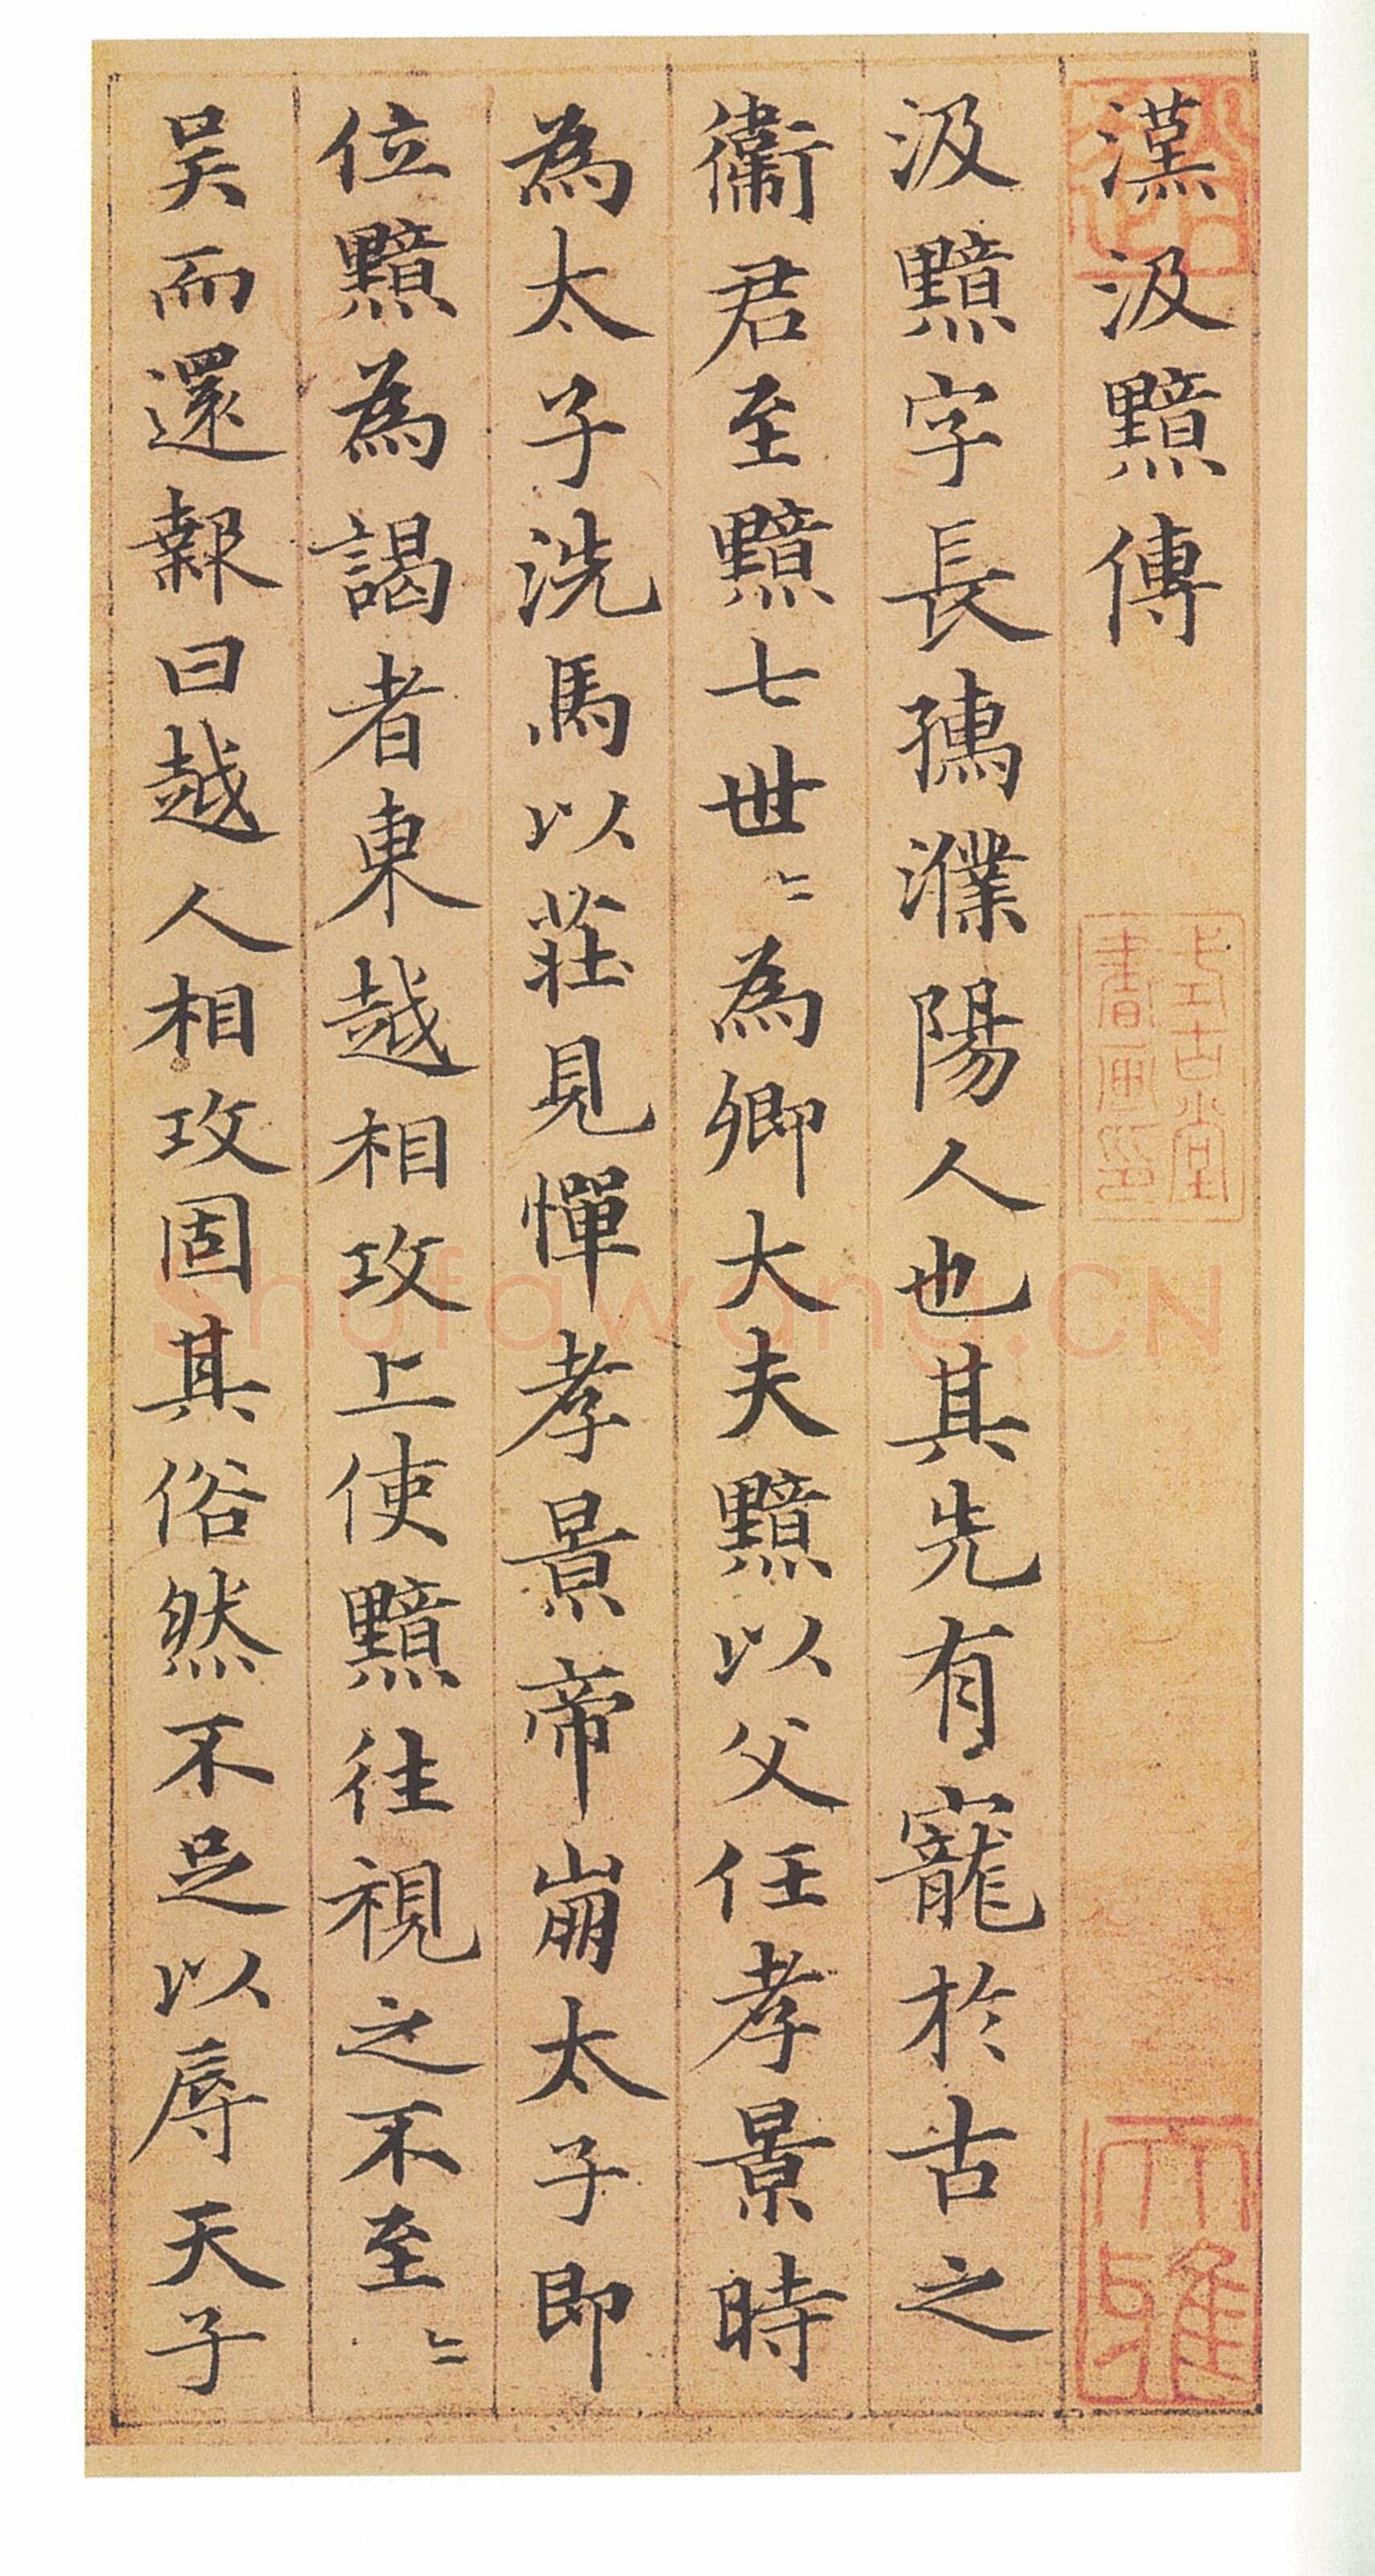 漢汲黯傳
汲黯字長孺濮陽人也其先有寵於古之
衞君至黯七世〻為卿大夫黯以父任孝景時
為太子洗馬以莊見憚孝景帝崩太子即
位黯為謁者東越相攻上使黯往視之不至〻
吴而還報曰越人相攻固其俗然不足以辱天子
Shufawang.CN